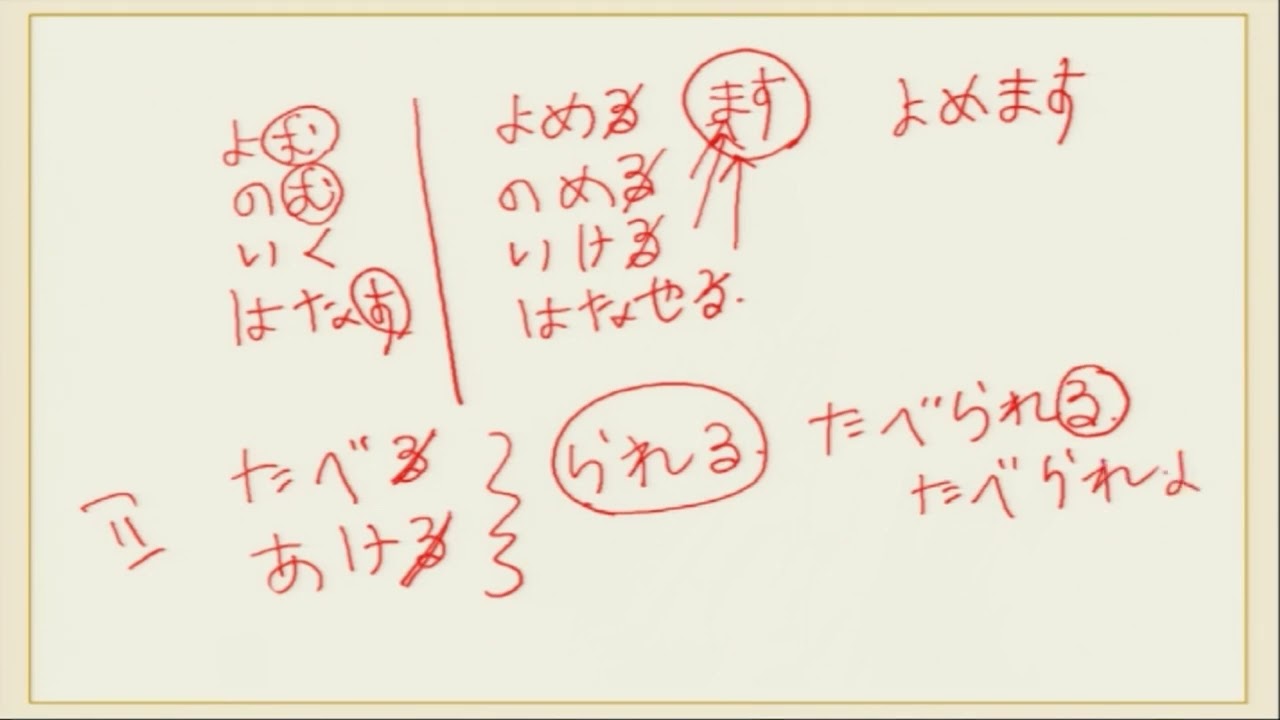 よむ よめる ます よめます
のむ のめる
いく いける
はなす はなせる.
II たべる られる. たべられる.
あける たべられよ